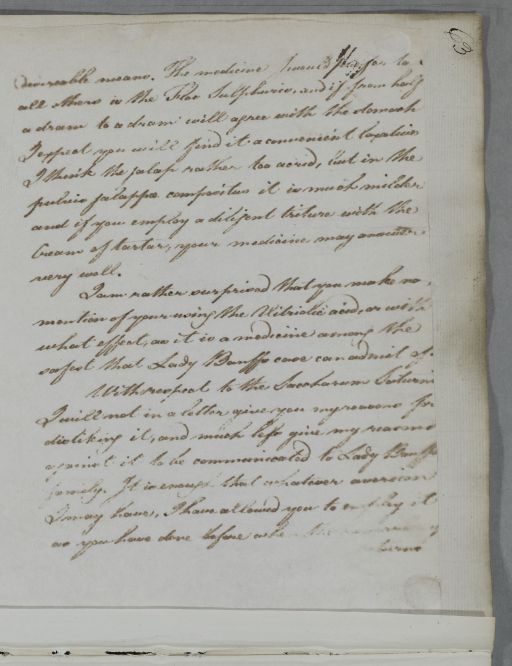 63
desireable means. The medicine I would prefer to
all others is the Flor Sulphuris, and if from half
a dram to a dram will agree with the stomach
I expect you will find it a convenient laxative
I think the jalap rather too acrid, but in the
pulvis jalappæ compositus it is much milder
and if you employ a diligent triture with the
Cream of tartar, your medicine may answer
very well.
I am rather surprised that you make no
mention of your using the Vitriolic acid, or with
what effect, as it is a medicine among the
safest that Lady Banffs case can admit of.
With respect to the Saccharum Saturni
I will not in a letter give you my reasons for
disliking it, and much less give my reasons
against it to be communicated to Lady Banffs
family. It is enough that whatever aversion
I may have, I have allowed you to employ it
as you have done before when the
returns